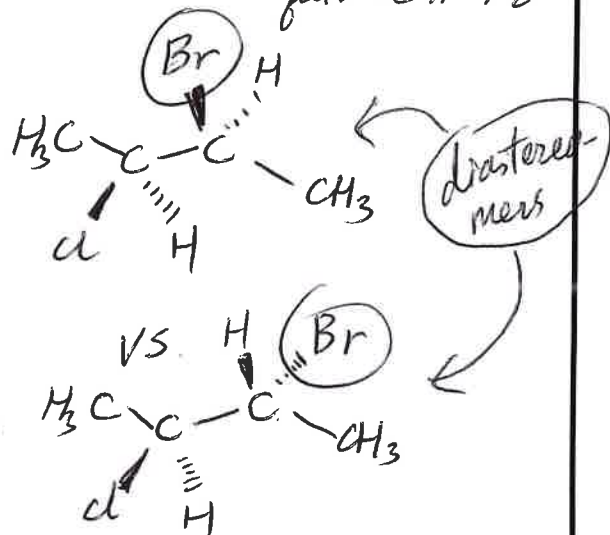 Br H
H₃C C C
CH₃
Cl H
diastereo-
mers
VS H Br
H₃C C C
CH₃
Cl H